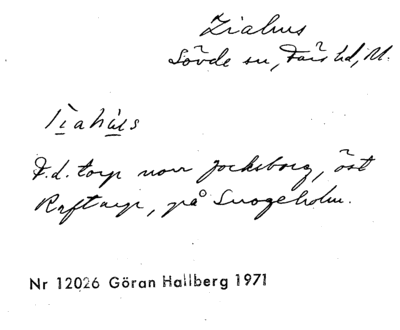 Ziahus
Sövde sn, Färs hd, M.
Ziahus
F.d. torp norr Jocksborg, öst
Raftarp, på Snogeholm.
Nr 12026 Göran Hallberg 1971